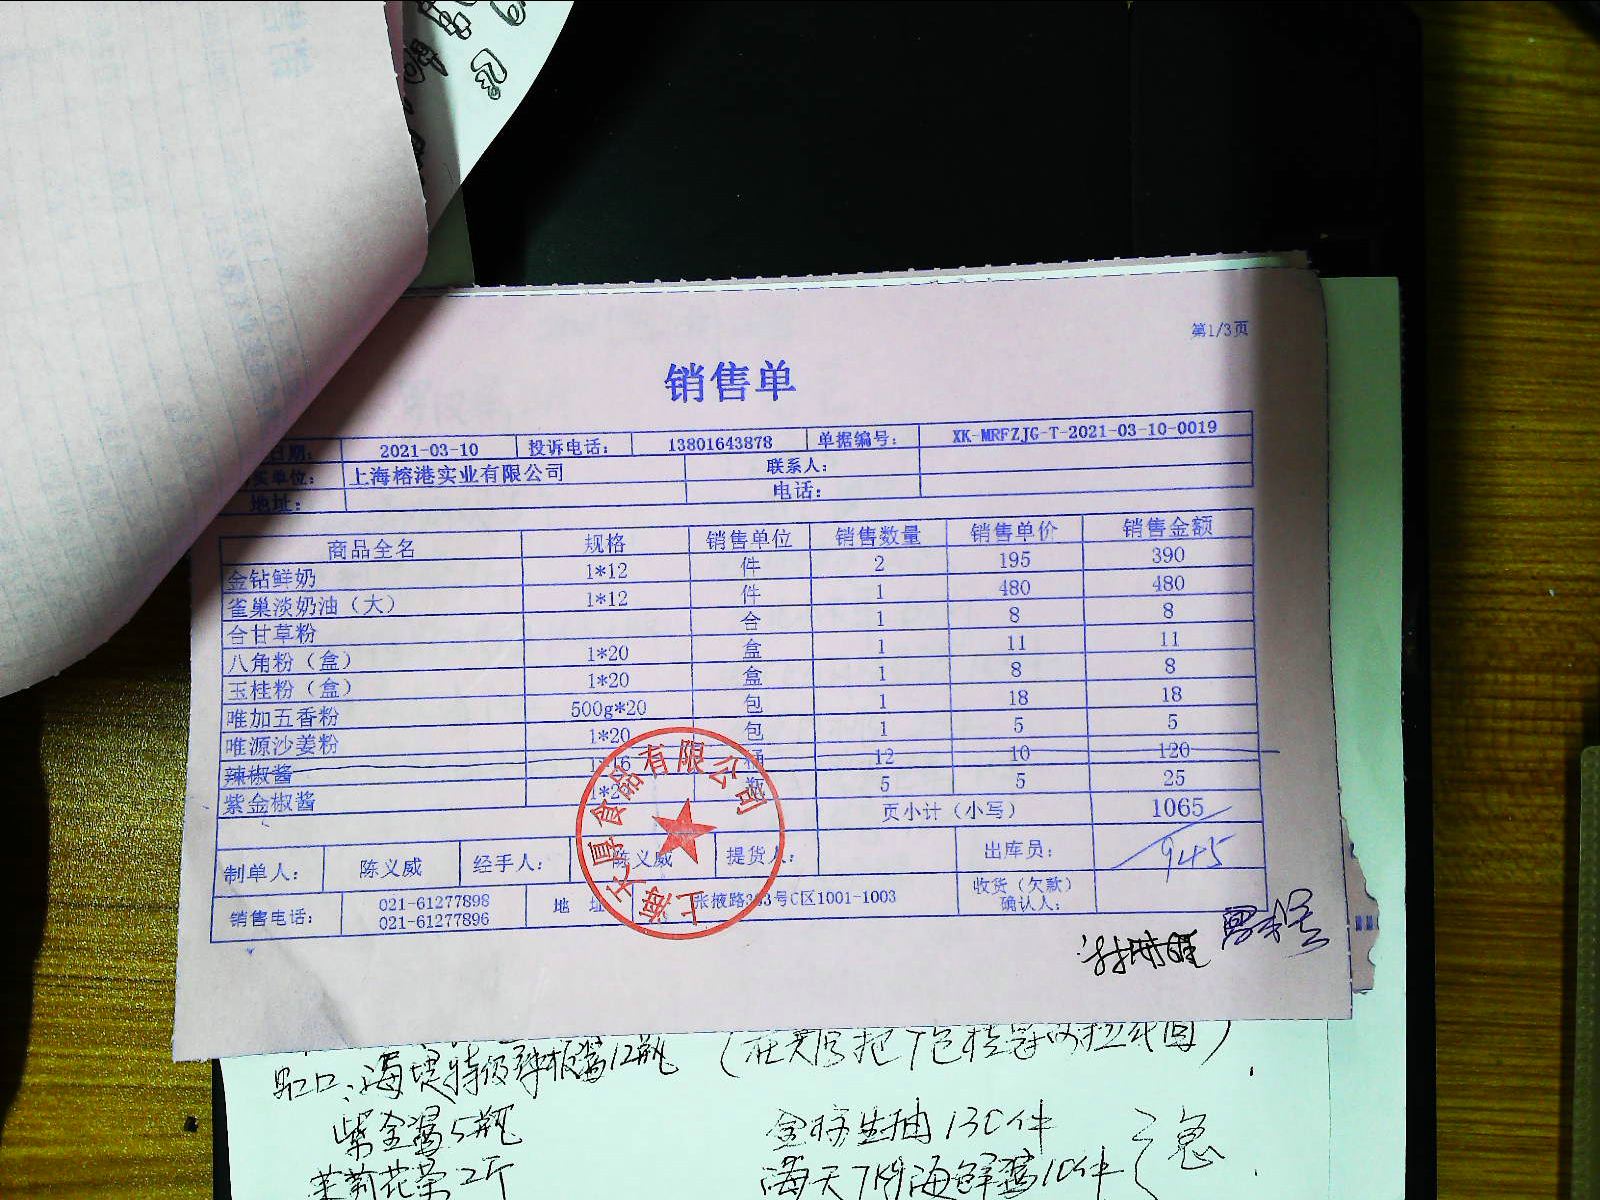 第1/3页
销售单
日期： 2021-03-10 投诉电话： 13801643878 单据编号： XK-MRFZJG-T-2021-03-10-0019
单位： 上海榕港实业有限公司 联系人：
地址： 电话：
商品全名 规格 销售单位 销售数量 销售单价 销售金额
金钻鲜奶 1*12 件 2 195 390
雀巢淡奶油（大） 1*12 件 1 480 480
合甘草粉 合 1 8 8
八角粉（盒） 1*20 盒 1 11 11
玉桂粉（盒） 1*20 盒 1 8 8
唯加五香粉 500g*20 包 1 18 18
唯源沙姜粉 1*20 包 1 5 5
辣椒酱 桶 12 10 120
紫金椒酱 瓶 5 5 25
页小计（小写） 1065
945
制单人： 陈义威 经手人： 陈义威 提货人： 出库员：
销售电话： 021-61277898 021-61277896 地址 张掖路 号C区1001-1003 收货（欠款）确认人：
上海 厚食品有限公司
虹口：海堤特级辣椒酱12瓶
紫金酱5瓶 金标生抽130件 急
茉莉花茶2斤 海天7kg海鲜酱10件